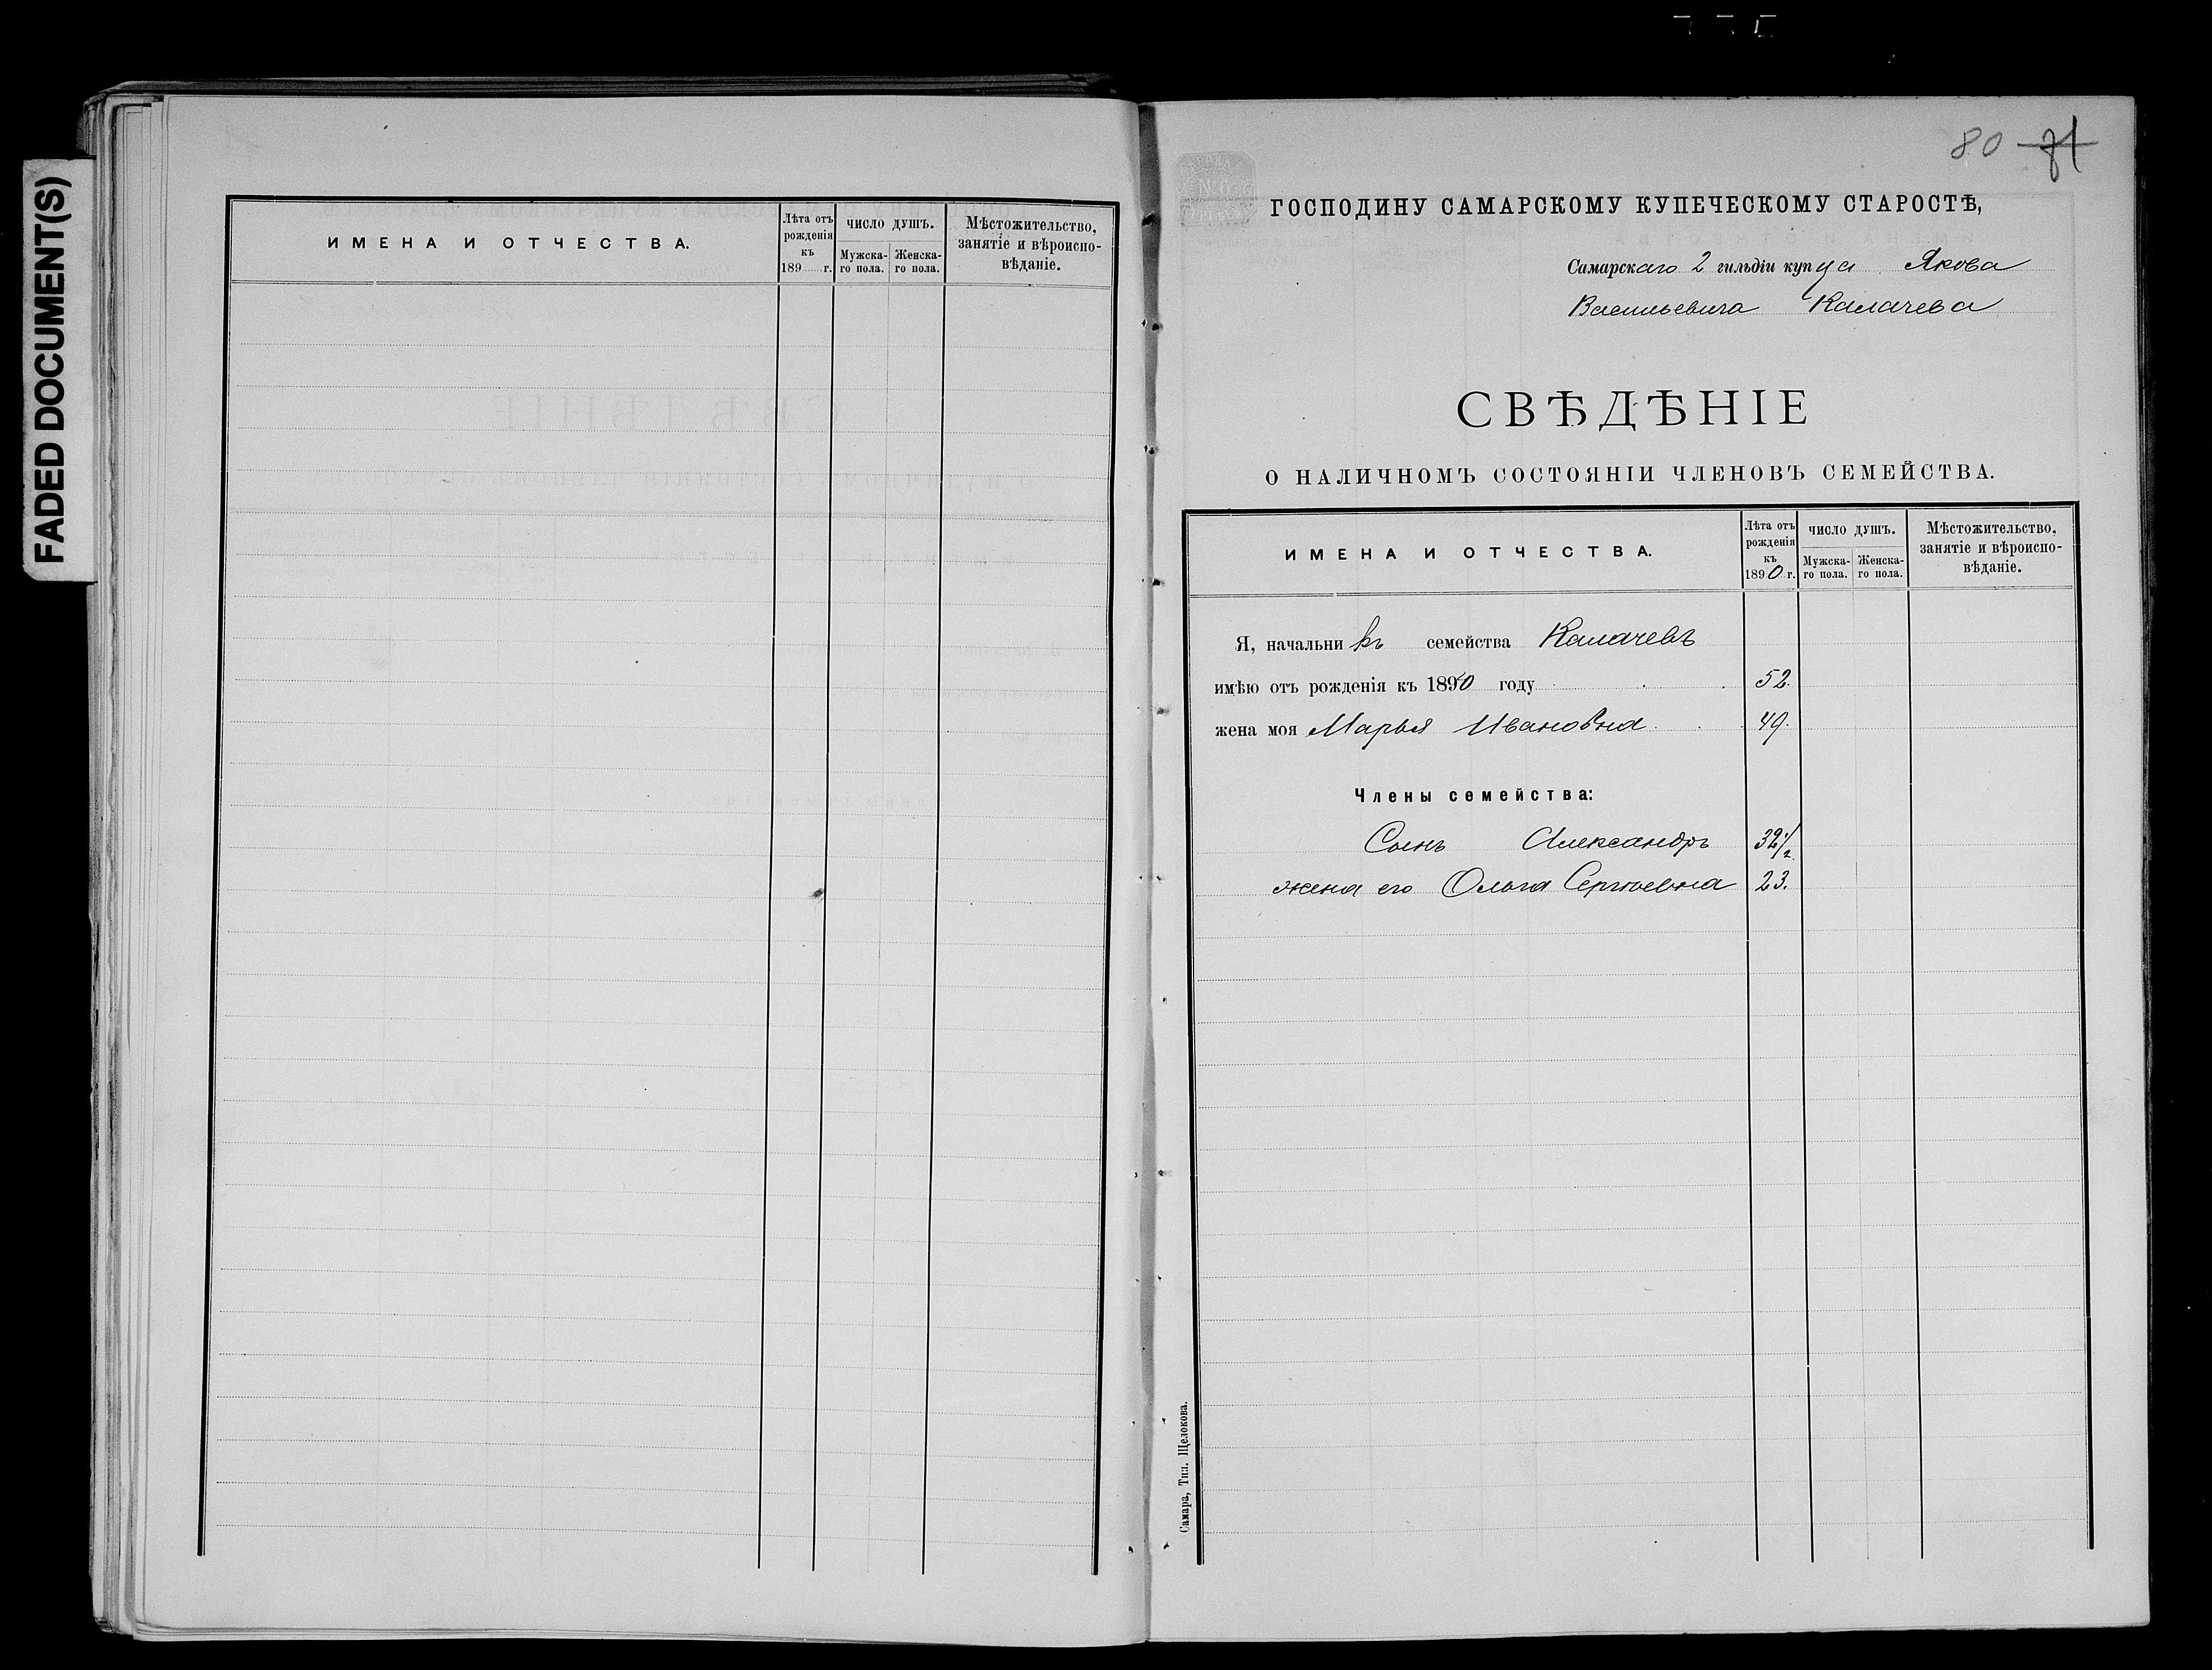 FADED DOCUMENT(S)
ИМЕНА И ОТЧЕСТВА.
Лѣта отъ рожденія къ 189 г.
ЧИСЛО ДУШЪ.
Мужска-го пола.
Женска-го пола.
Мѣстожительство, занятіе и вѣроиспо-вѣданіе.
80 71
ГОСПОДИНУ САМАРСКОМУ КУПЕЧЕСКОМУ СТАРОСТѢ,
Самарскаго 2 гильдіи купца Якова
Васильевича Калачева
СВѢДѢНІЕ
О НАЛИЧНОМЪ СОСТОЯНІИ ЧЛЕНОВЪ СЕМЕЙСТВА.
ИМЕНА И ОТЧЕСТВА.
Лѣта отъ рожденія къ 1890 г.
ЧИСЛО ДУШЪ.
Мужска-го пола.
Женска-го пола.
Мѣстожительство, занятіе и вѣроиспо-вѣданіе.
Я, начальникъ семейства Калачевъ
имѣю отъ рожденія къ 1890 году 52.
жена моя Марья Ивановна 49.
Члены семейства:
Сынъ Александръ 32 1/2.
жена его Ольга Сергѣевна 23.
Самара, Тип. Щелокова.